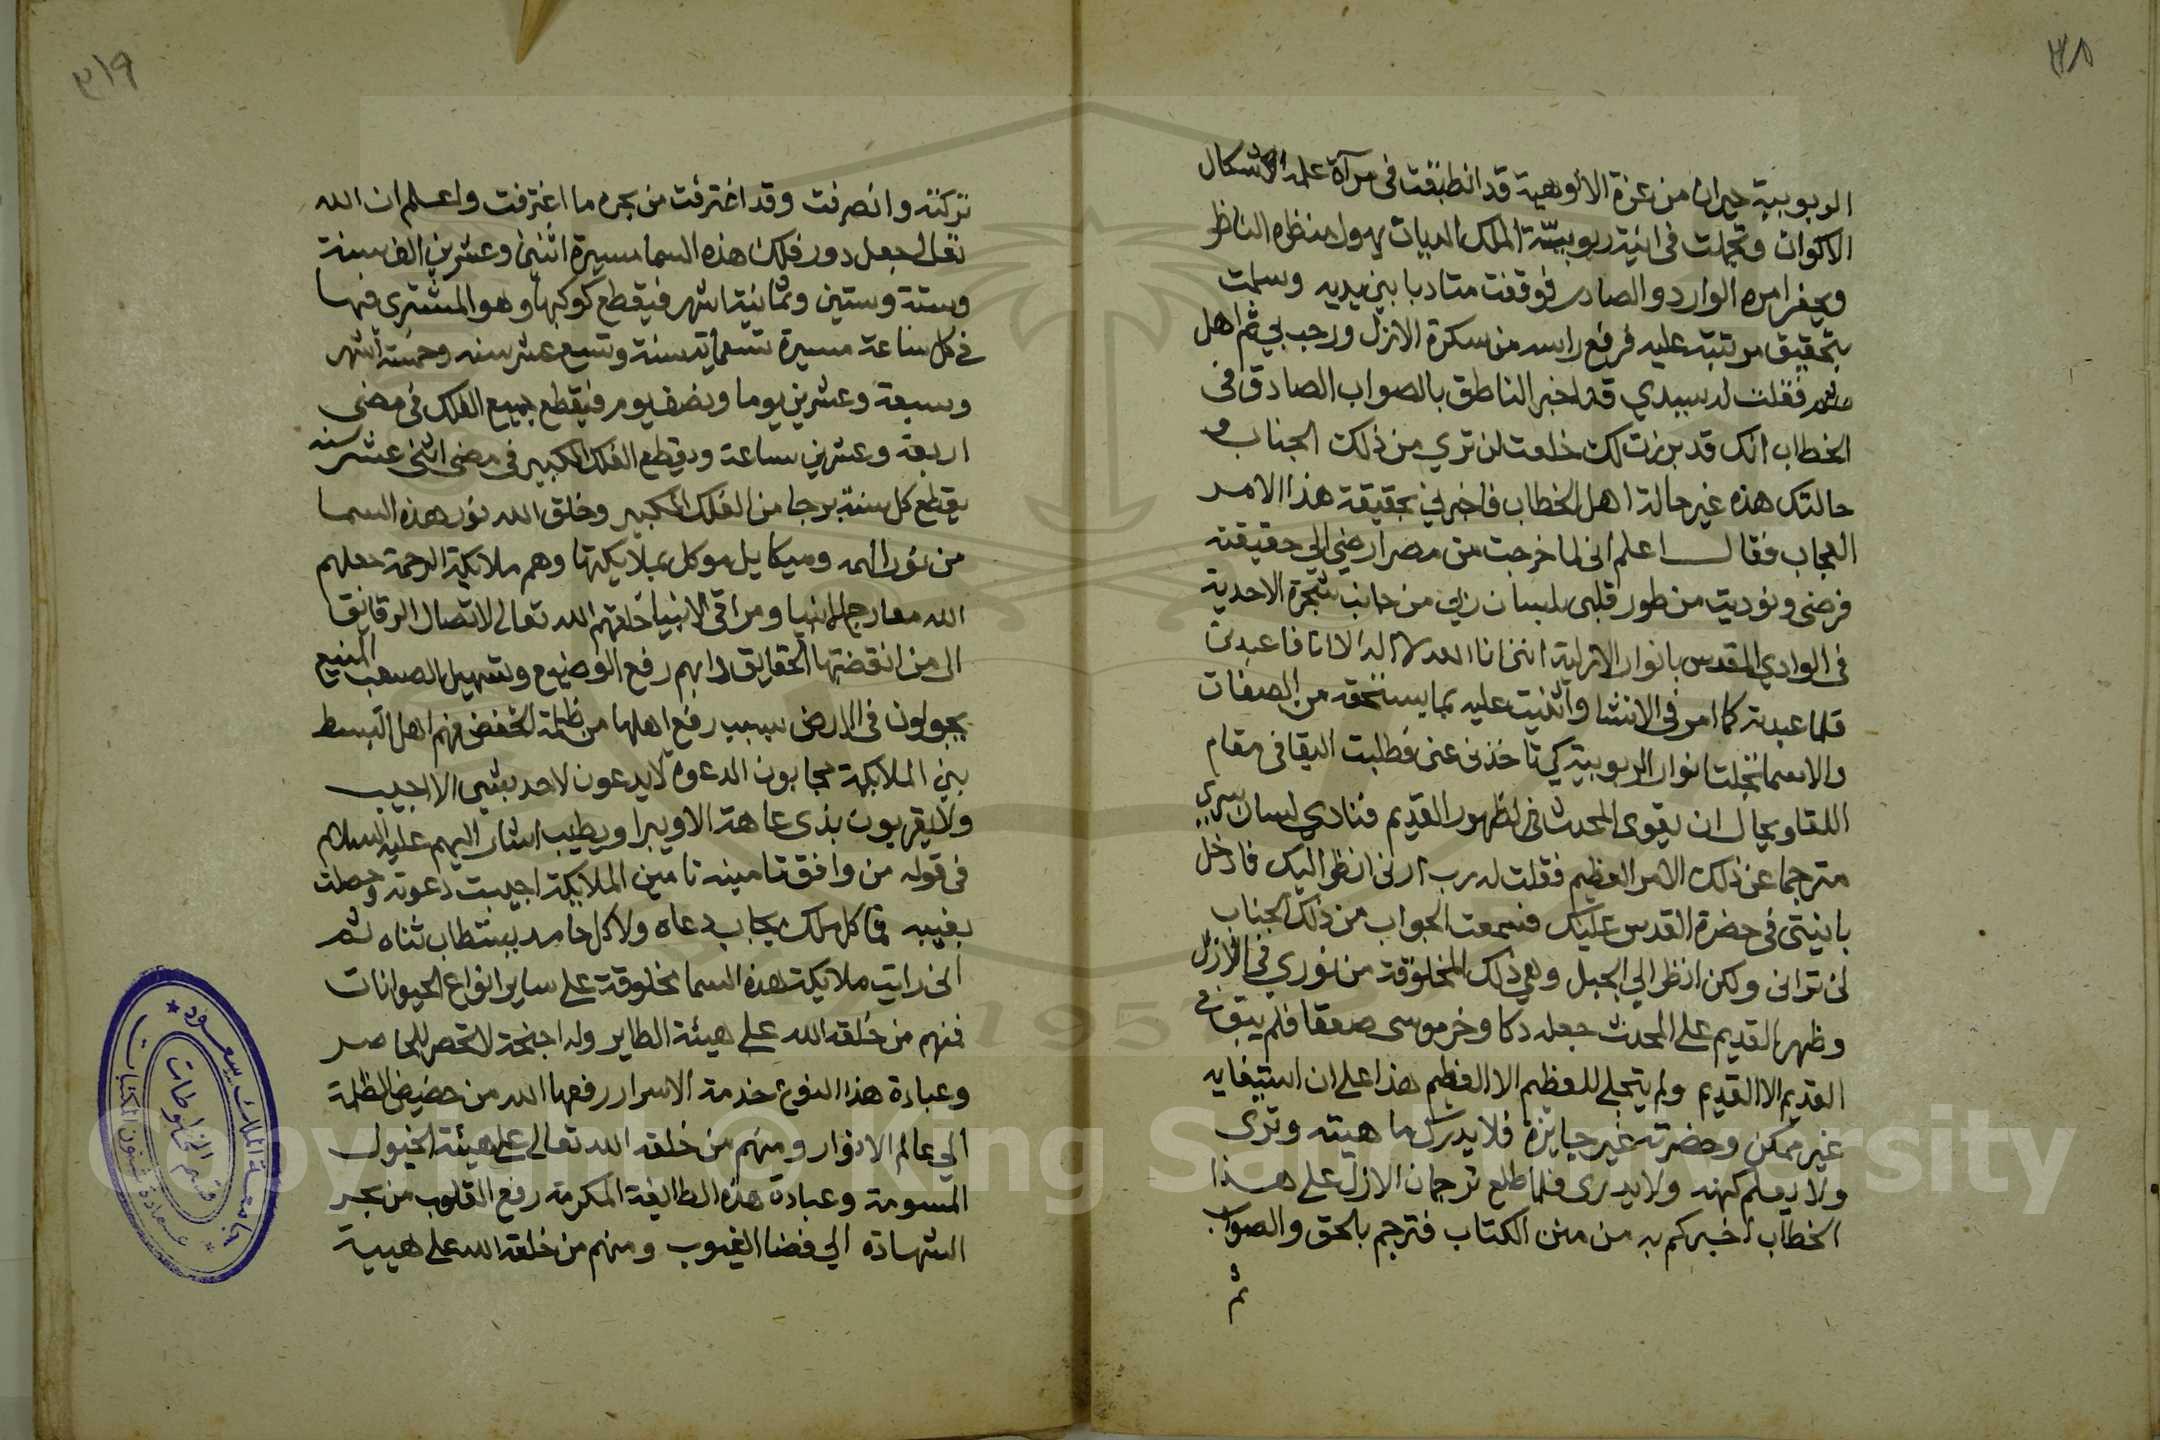 ٣١٨
الربوبية حيران من عزة الالوهية قد انطبقت في مرآة علمه اشكال
الاكوان وتجلت في انية ربوبيته الملك الديان يهول منظره الناظر
ويحير امره الوارد والصادر فوقفت متادبا بين يديه وسلمت
بتحقيق مرتبته عليه فرفع راسه من سكرة الازل ورحب بي ثم اهل
فقلت له سيدي قد اخبر الناطق بالصواب الصادق في
الخطاب انك قد برزت لك خلعت لن تري من ذلك الجناب و
حالتك هذه غير حالة اهل الخطاب فاخبرني بحقيقة هذا الامر
العجاب فقال اعلم اني لما خرجت من مصر ارضي الي حقيقته
فرضي ونوديت من طور قلبي بلسان ربي من جانب شجرة الاحدية
في الوادي المقدس بانوار الازلية انني انا الله لا اله الا انا فاعبدني
فلما عبدته كما امر في الانشا واثنيت عليه بما يستحقه من الصفات
والاسما تجلت انوار الربوبية كي تاخذني عني فطلبت البقا في مقام
اللقا ومحال ان يقوي المحدث في لظهور القديم فنادي لسان سري
مترجما عن ذلك الامر العظيم فقلت له رب ارني انظر اليك فادخل
بانيتي في حضرة القدس عليك فسمعت الجواب من ذلك الجناب
لن تراني ولكن انظر الي الجبل وهي ذلك المخلوقة من نوري في الازل
وظهر القديم علي المحدث جعله دكا وخر موسي صعقا فلم يبق في
القديم الا القديم ولم يتجلي للعظيم الا العظيم هذا علي ان استيفايه
غير ممكن وحضرته غير جايزة فلا يدرك ماهيته وتري
ولا يعلم كنهه ولا يدري فلما طلع ترجمان الازل علي هذا
الخطاب اخبركم به من متن الكتاب فترجم بالحق والصواب
ثم
٣١٩
تركته وانصرفت وقد اغترفت من بحره ما اغترفت واعلم ان الله
تعالي جعل دور فلك هذه السما مسيرة اثنين وعشرين الف سنة
وستة وستين وثمانية اشهر فيقطع كوكبها وهو المشتري فيها
في كل ساعة مسيرة تسعماية سنة وتسع عشر سنه وخمسة اشهر
وسبعة وعشرين يوما ونصف يوم فيقطع جميع الفلك في مضي
اربعة وعشرين ساعة ويقطع الفلك الكبير في مضي اثني عشر سنه
يقطع كل سنة برجا من الفلك الكبير وخلق الله نور هذه السما
من نور الهمه وميكايل موكل بملايكتها وهم ملايكة الرحمة جعلهم
الله معارج الانبيا ومراقي الاوليا خلقهم الله تعالي لاتصال الرقايق
الي من اقتضتها الحقايق دابهم رفع الوضيع وتسهيل الصعب المنيع
يجولون في الارض بسبب رفع اهلها من ظلمة الخفض فهم اهل البسط
بين الملايكة مجابون الدعوة لا يدعون لاحد بشي الا اجيب
ولا يقربون بذي عاهة الا ويبرا ويطيب اشار اليهم عليه السلام
في قوله من وافق تامينه تامين الملايكة اجيبت دعوته وحصلت
بغيته فما كل ملك يجاب دعاه ولا كل حامد يستطاب ثناه ثم
اني رايت ملايكة هذه السما مخلوقة علي ساير انواع الحيوانات
فمنهم من خلقه الله علي هيئة الطاير وله اجنحة لا تحصر للحاصر
وعبادة هذا النوع خدمة الاسرار رفعها الله من حضيض الظلمة
الي عالم الانوار ومنهم من خلقه الله تعالي علي هيئة الخيول
المسومة وعبادة هذه الطايفة المكرمة رفع القلوب من بحر
الشهادة الي فضا الغيوب ومنهم من خلقه الله علي هيية
جامعة الملك سعود
عمادة شئون المكتبات
قسم المخطوطات
1957
Copyright © King Saud University